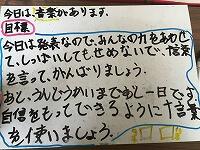 今日は、音楽があります。
目標
今日は発表なので、みんなの力をあわせ
て、しっぱいしてもせめないで、信葉
を言って、がんばりましょう。
あと、うんどうかいまであと一日です
自信をもってできるように十言葉
を使いましょう。